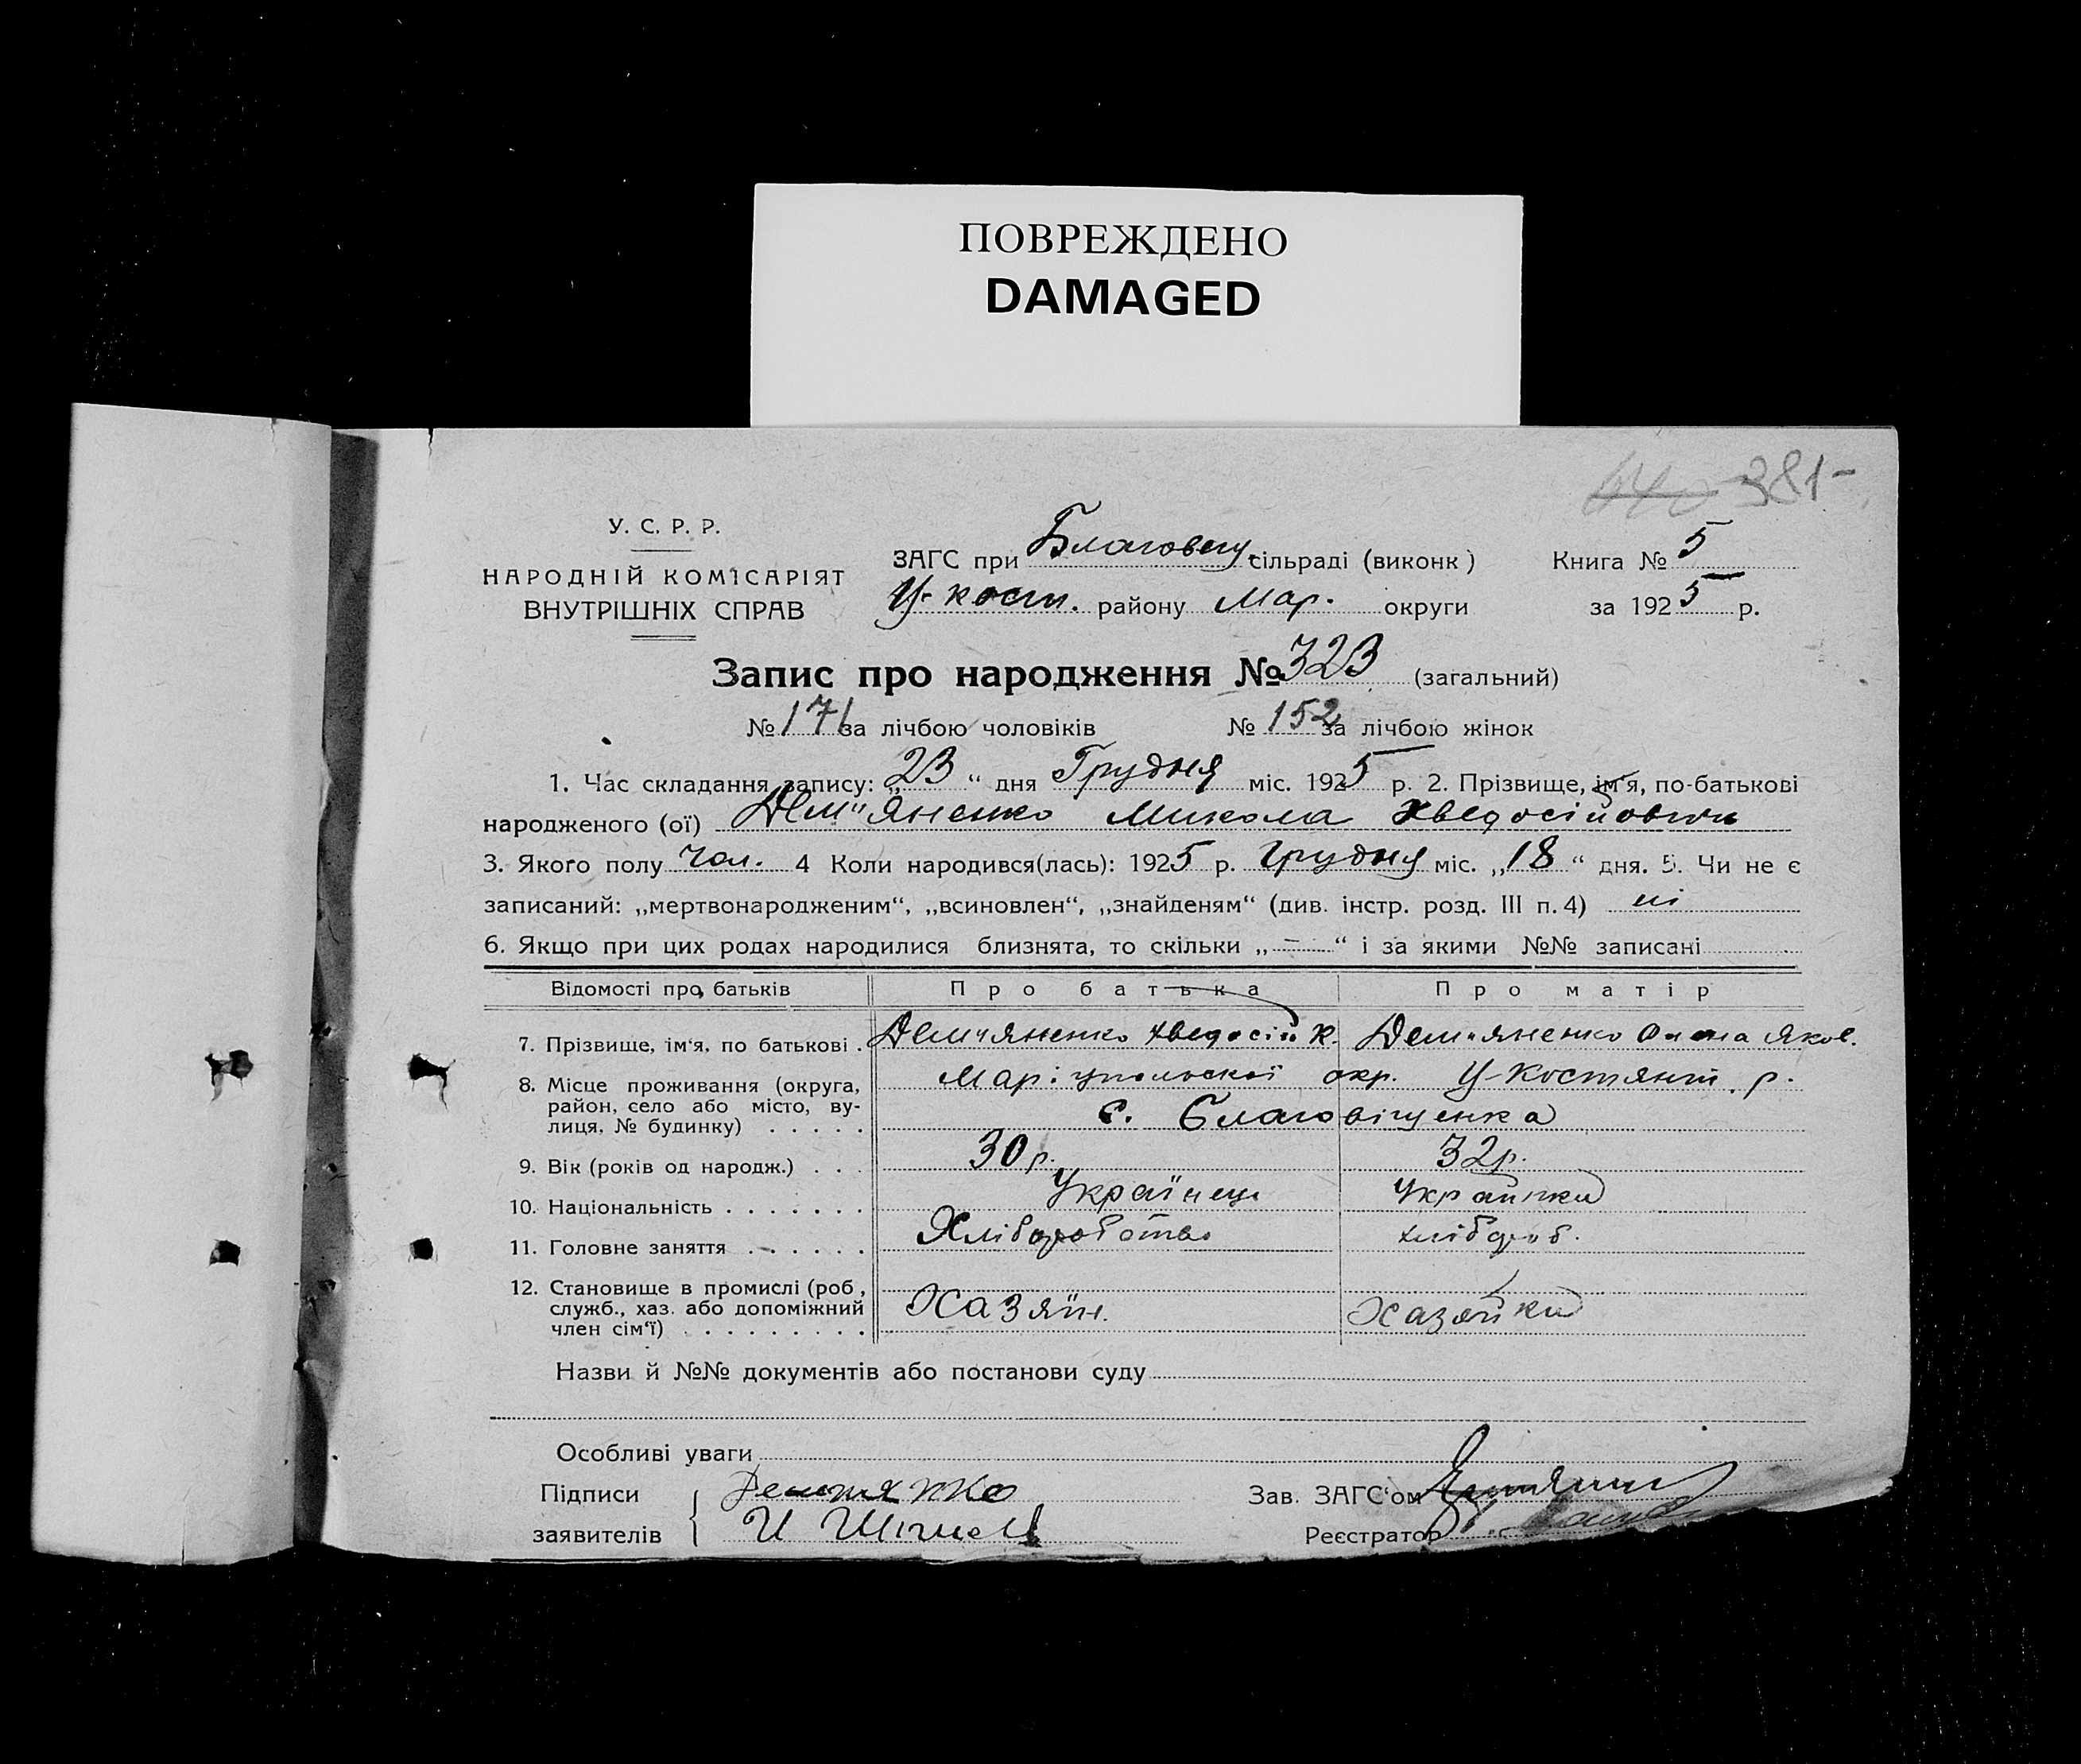 ПОВРЕЖДЕНО
DAMAGED
381-
У. С. Р. Р.
НАРОДНІЙ КОМІСАРІЯТ
ВНУТРІШНІХ СПРАВ
ЗАГС при Благовещ. сільраді (виконк)
У-кост. району Мар. округи
Книга № 5
за 1925 р.
Запис про народження № 323 (загальний)
№ 171 за лічбою чоловіків № 152 за лічбою жінок
1. Час складання запису: „23“ дня Грудня міс. 1925 р. 2. Прізвище, ім'я, по-батькові
народженого (ої) Дем"яненко Микола Хведосійович
3. Якого полу чол. 4 Коли народився(лась): 1925 р. Грудня міс. „18“ дня. 5. Чи не є
записаний: „мертвонародженим“, „всиновлен“, „знайденям“ (див. інстр. розд. III п. 4) ні
6. Якщо при цих родах народилися близнята, то скільки „—“ і за якими №№ записані
Відомості про батьків Про батька Про матір
7. Прізвище, ім'я, по батькові . Дем"яненко Хведосій К. Дем"яненко Олена Яков.
8. Місце проживання (округа, район, село або місто, вулиця, № будинку) . . . . . Маріупольскоі окр. У-Костянт. р.
с. Благовіщенка
9. Вік (років од народж.) . . . 30 р. 32 р.
10. Національність . . . . . . . Українець Українка
11. Головне заняття . . . . . . Хліборобство хлібороб.
12. Становище в промислі (роб, служб., хаз. або допоміжний член сім'ї) . . . . . . . . . Хазяїн. Хазяйка
Назви й №№ документів або постанови суду
Особливі уваги
Підписи
заявителів
Зав. ЗАГС'ом
Реєстратор